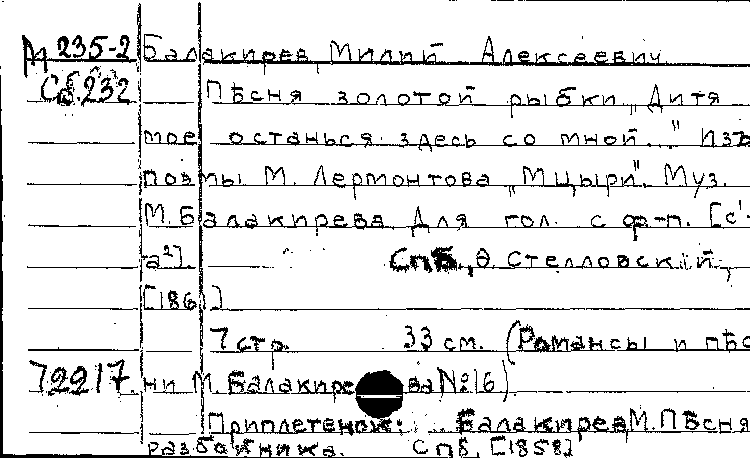 М 235-2 Балакирев, Милий Алексеевич
Сб.232 Пѣсня золотой рыбки „Дитя
мое останься здесь со мной..." Изъ
поэмы М. Лермонтова „Мцыри". Муз.
М. Балакирева. Для гол. с ф-п. [c'-
a²]. СПБ., Ѳ. Стелловскій,
[1861]
7 стр. 33 см. (Романсы и пѣс
72217 ни М. Балакирева №16)
Приплетенок: Балакирев, М. Пѣсня
разбойника. СПБ, [1858]